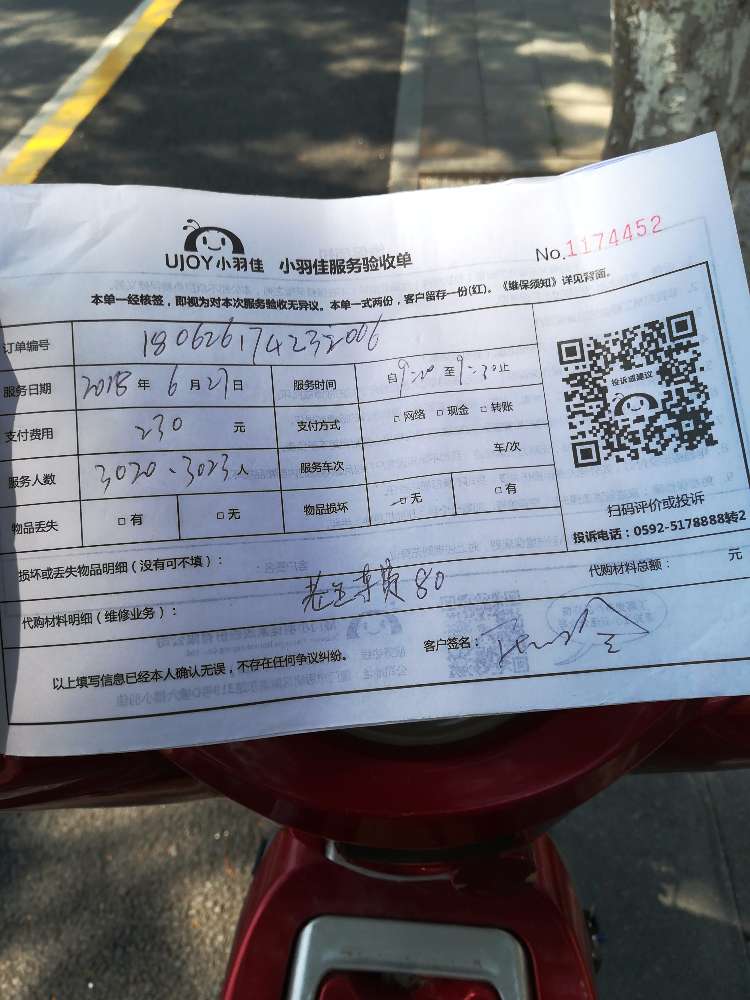 UJOY小羽佳 小羽佳服务验收单 No.1174452
本单一经核签，即视为对本次服务验收无异议。本单一式两份，客户留存一份(红)。《维保须知》详见背面。
订单编号 180626174232006
服务日期 2018 年 6 月 27 日 服务时间 自 9:00 至 9:30 止
支付费用 230 元 支付方式 □ 网络 □ 现金 □ 转账
服务人数 3020、3023 人 服务车次 车/次
物品丢失 □ 有 □ 无 物品损坏 □ 无 □ 有
投诉或建议
扫码评价或投诉
投诉电话：0592-5178888转2
损坏或丢失物品明细（没有可不填）：
代购材料明细（维修业务）： 80 代购材料总额： 元
以上填写信息已经本人确认无误，不存在任何争议纠纷。 客户签名：